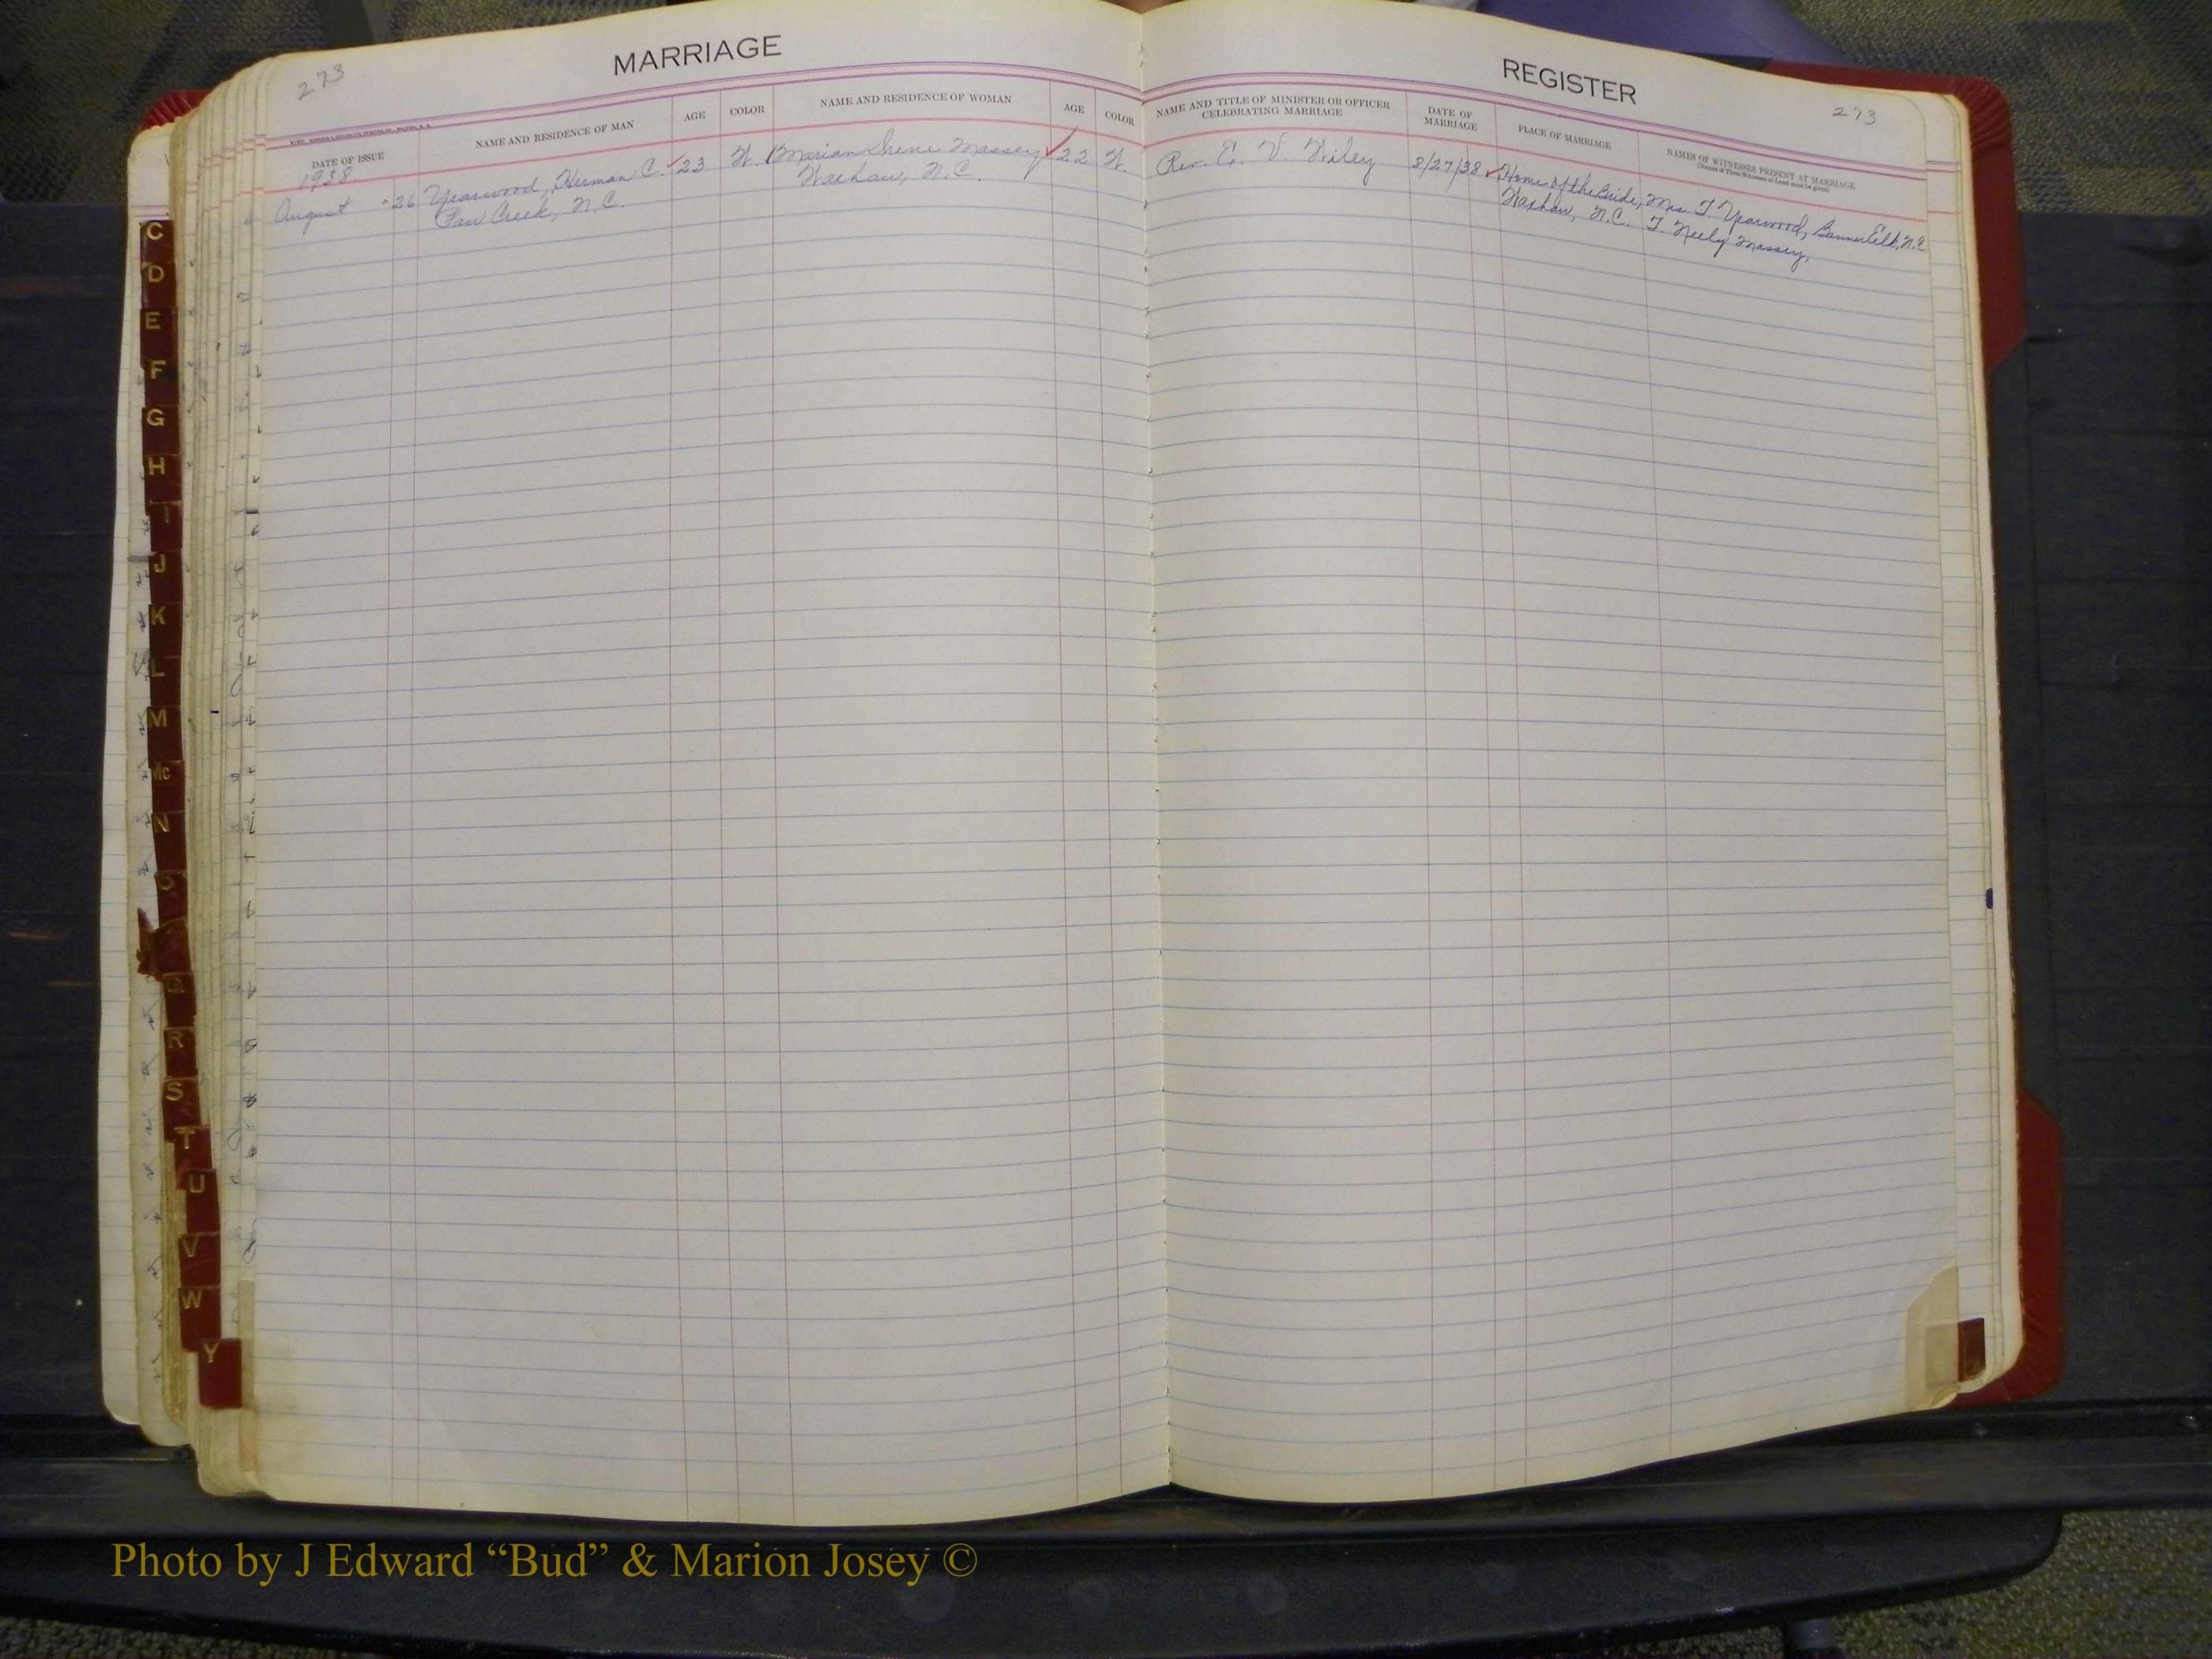 273
MARRIAGE
REGISTER
273
DATE OF ISSUE
NAME AND RESIDENCE OF MAN
AGE
COLOR
NAME AND RESIDENCE OF WOMAN
AGE
COLOR
NAME AND TITLE OF MINISTER OR OFFICER
CELEBRATING MARRIAGE
DATE OF
MARRIAGE
PLACE OF MARRIAGE
NAMES OF WITNESSES PRESENT AT MARRIAGE
(Names of Three Witnesses at Least must be given)
1938
August 26
Yearwood, Herman C.
Paw Creek, N.C.
23
W.
Marian Irene Massey
Waxhaw, N.C.
22
W.
Rev. E. V. Wiley
8/27/38
Home of the Bride,
Waxhaw, N.C.
Mrs. T. Yearwood, Banner Elk, N.C.
T. Neely Massey,
C
D
E
F
G
H
I
J
K
L
M
Mc
N
O
Q
R
S
T
U
V
W
Y
Photo by J Edward “Bud” & Marion Josey ©